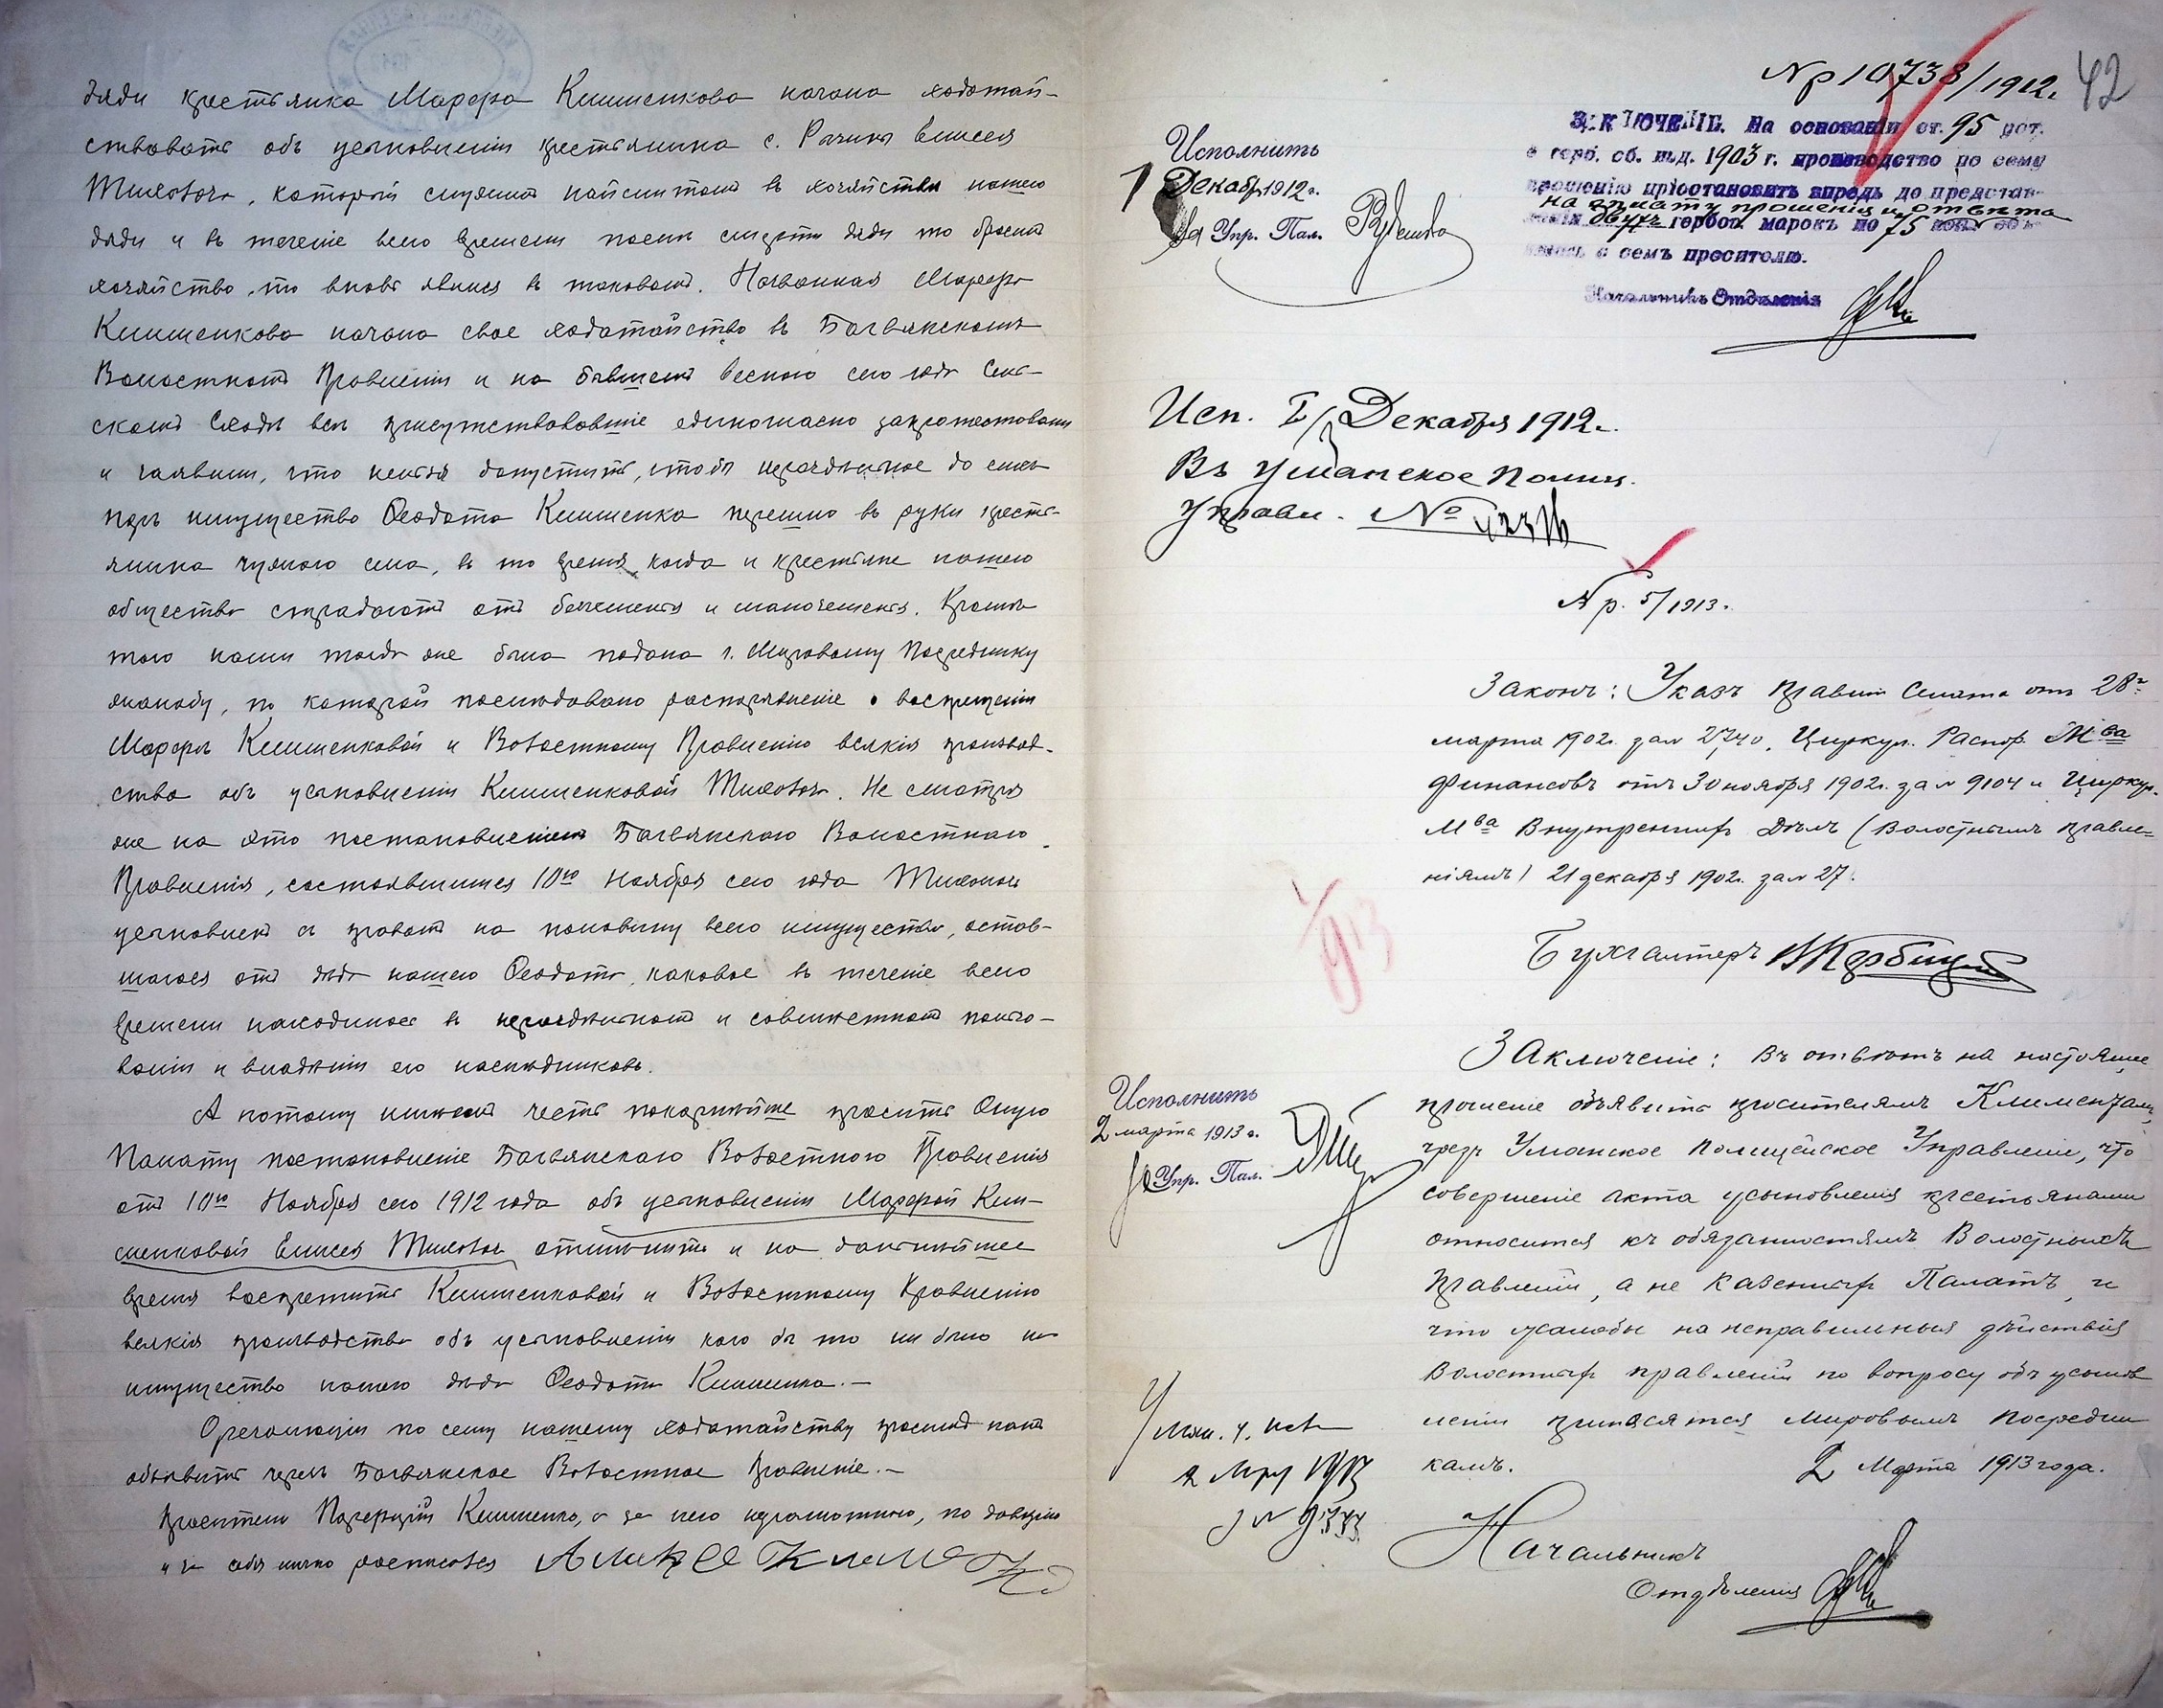 дяди крестьянка Марфа Клименкова начала ходатай-
ствовать объ усыновленіи крестьянина с. Рачина Елисея
который служилъ наймитомъ въ хозяйствѣ нашего
дяди и въ теченіе всего времени послѣ смерти дяди то бросалъ
хозяйство, то вновь явился въ таковомъ. Названная Марфа
Клименкова начала свое ходатайство въ Багвянскомъ
Волостномъ Правленіи и на бывшемъ весною сего года Сель-
скомъ Сходѣ всѣ присутствовавшіе единогласно запротестовали
и заявили, что нельзя допустить, чтобы нераздѣльное до сихъ
поръ имущество Ѳеодота Клименка перешло въ руки кресть-
янина чужого села, въ то время, когда и крестьяне нашего
общества страдаютъ отъ безземелья и малоземелья. Кромѣ
того нами тогда же была подана г. Мировому Посреднику
жалоба, по которой послѣдовало распоряженіе о воспрещеніи
Марфѣ Клименковой и Волостному Правленію всякія производ-
ства объ усыновленіи Клименковой Не смотря
же на это постановленіемъ Багвянскаго Волостнаго
Правленія, состоявшимся 10го Ноября сего года
усыновленъ съ правомъ на половину всего имущества, остав-
шагося отъ дяди нашего Ѳеодота, каковое въ теченіе всего
времени находилось въ нераздѣльномъ и совмѣстномъ пользо-
ваніи и владѣніи его наслѣдниковъ.
А потому имѣемъ честь покорнѣйше просить Оную
Палату постановленіе Багвянскаго Волостного Правленія
отъ 10го Ноября сего 1912 года объ усыновленіи Марфой Кли-
менковой Елисея отмѣнить и на дальнѣйшее
время воспретить Клименковой и Волостному Правленію
всякія производства объ усыновленіи кого бы то ни было на
имущество нашего дяди Ѳеодота Клименка.—
О резолюціи по сему нашему ходатайству просимъ намъ
объявить чрезъ Багвянское Волостное Правленіе.—
Просители Порфирій Клименко, а за него неграмотнаго, по довѣрію
и за себя лично росписался
Nр 10738/1912г. 42
Исполнить
1 Декабр 1912 г.
За Упр. Пал.
ЗАКЛЮЧЕНІЕ. На основаніи ст. 95 уст.
о герб. сб. изд. 1903 г. производство по сему
прошенію пріостановить впредь до представ-
на оплату прошенія и отвѣта
ленія двухъ гербов. марокъ по 75 коп. объ
явивъ о семъ просителю.
Начальникъ Отдѣленія
Исп. Декабря 1912 г.
Въ Уманское Полиц.
Управл. №
Nр. 5/1913.
Законъ: Указъ Правит Сената отъ 28го
марта 1902г. за № 2740, Циркул. Распор. Мва
Финансовъ отъ 30 ноября 1902г. за № 9104 и Циркул.
Мва Внутреннихъ Дѣлъ (Волостнымъ Правле=
ніямъ) 21 декабря 1902г. за № 27.
Бухгалтеръ
Исполнить
2 марта 1913 г.
За Упр. Пал.
Заключеніе: Въ отвѣтъ на настоящее
прошеніе объявить просителямъ Клименкамъ,
чрезъ Уманское Полицейское Управленіе, что
совершеніе акта усыновленія крестьянами
относится къ обязанностямъ Волостныхъ
Правленій, а не Казенныхъ Палатъ, и
что жалобы на неправильныя дѣйствія
Волостныхъ правленій по вопросу объ усынов
леніи приносятся Мировымъ Посредни
камъ. 2 Марта 1913 года.
Начальникъ
Отдѣленія